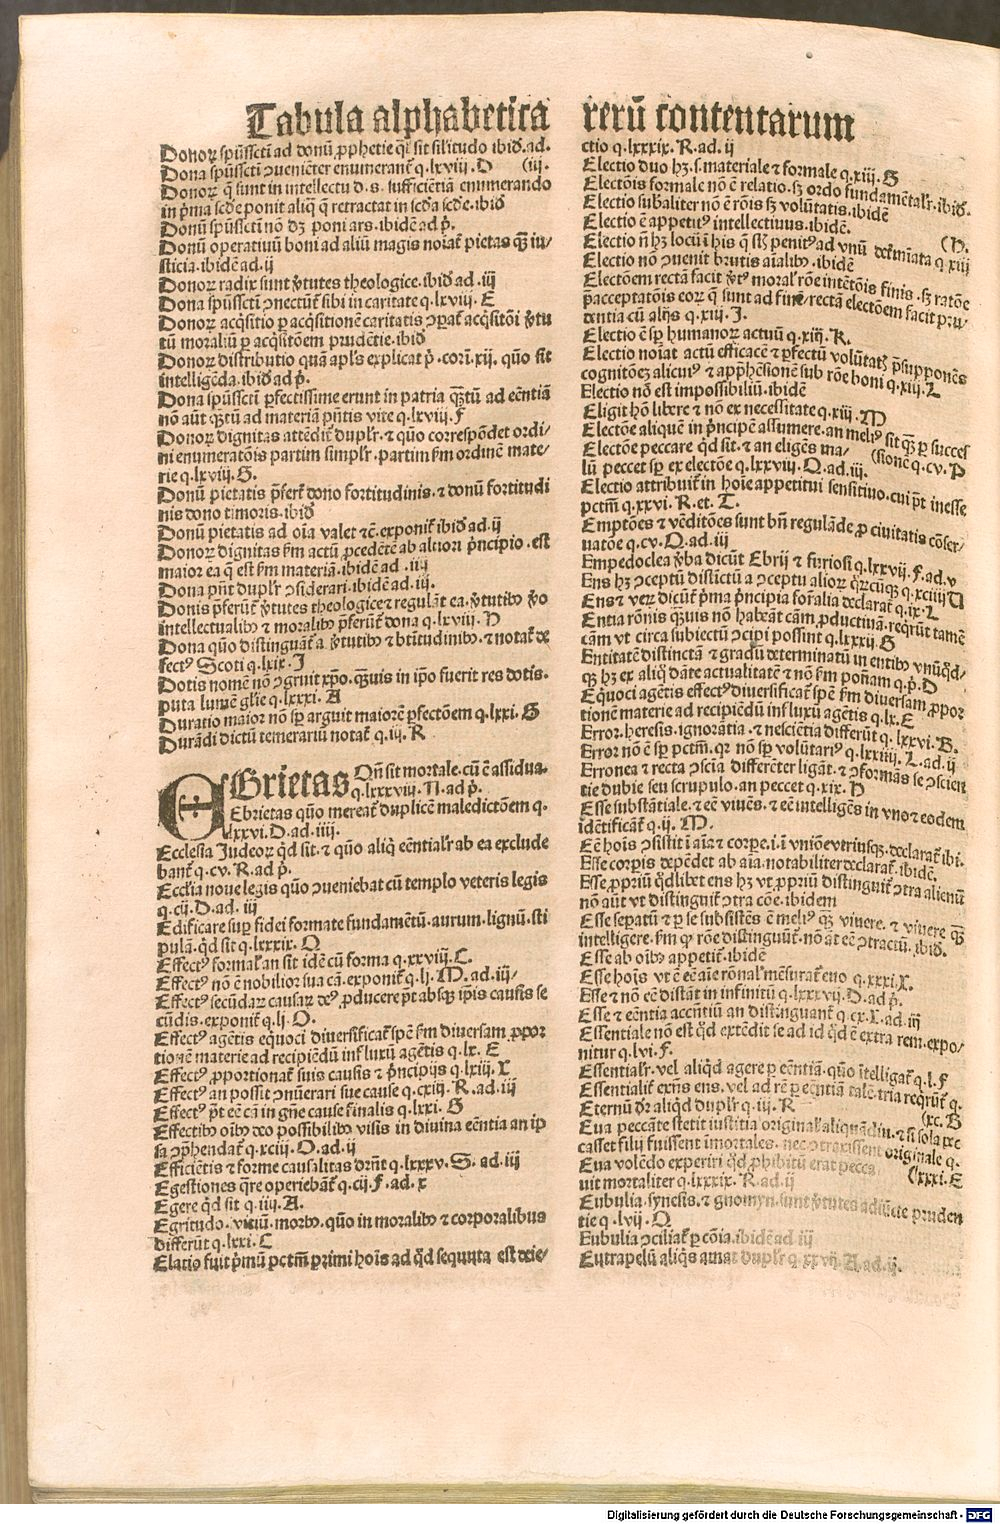 Tabula alphabetica rerū contentarum
Donoꝝ spūsscti ad donū ꝓphetie q̄l sit silitudo ibid.ad.
Dona spūsscti ↄueniēter enumerant̄ q.lxviij.D (iij.
Donoꝝ q̄ sunt in intellectu d.s. sufficiētiā enumerando
in p̄ma scd̄e ponit aliq̄ q̄ retractat in scd̄a scd̄e.ibid
Donū spūsscti nō dꝫ poni ars.ibidē ad p̄.
Donū operatiuū boni ad aliū magis noīat̄ pietas qꝫ iu/
sticia.ibidē ad.ij
Donoꝝ radix sunt v̄tutes theologice.ibid ad.iij
Dona spūsscti ↄnectūt̄ sibi in caritate q.lxviij.E
Donoꝝ acq̄sitio ꝑ acq̄sitionē caritatis ↄꝑat̄ acq̄sitōi v̄tu
tū moraliū ꝑ acq̄sitōem prudētie.ibid
Donoꝝ distributio quā apl̄s explicat p̄.cori.xij. quō sit
intelligēda.ibid ad p̄.
Dona spūsscti ꝑfectissime erunt in patria qꝫtū ad eēntiā
nō aūt qꝫtū ad materiā p̄ntis vite q.lxviij.F
Donoꝝ dignitas attēdit̄ dupl̄r.⁊ quō correspōdet ordi/
ni enumeratōis partim simpl̄r.partim ẜm ordinē mate/
rie q.lxviij.G.
Donū pietatis p̄fert̄ dono fortitudinis.⁊ donū fortitudi
nis dono timoris.ibid
Donū pietatis ad oīa valet ⁊c̄.exponit̄ ibid ad.ij
Donoꝝ dignitas ẜm actū ꝓcedētē ab altiori p̄ncipio.est
maior ea q̄ est ẜm materiā.ibidē ad.iij
Dona p̄nt dupl̄r ↄsiderari.ibidē ad.iij.
Donis p̄ferūt̄ v̄tutes theologice ⁊ regulāt ea.v̄tutibꝰ v̄o
intellectualibꝰ ⁊ moralibꝰ p̄ferūt̄ dona q.lxviij.H
Dona quō distinguāt̄ a v̄tutibꝰ ⁊ btītudinibꝰ.⁊ notat̄ de
fectꝰ Scoti q.lxix.I
Dotis nomē nō ↄgruit xp̄o.qꝫuis in ip̄o fuerit res dotis.
puta lumē gl̄ie q.lxxxi.A
Duratio maior nō sp̄ arguit maiorē ꝑfectōem q.lxxi.G
Durādi dictū temerariū notat̄ q.iij.R
EBrietas Qn̄ sit mortale.cū ē assidua.
q.lxxxviij.N.ad p̄.
Ebrietas quō mereat̄ duplicē maledictōem q.
lxxvi.D.ad.iiij.
Ecclesia Iudeoꝝ qd sit.⁊ quō aliq̄ eēntial̄r ab ea exclude
bant̄ q.cv.R.ad p̄.
Eccl̄ia noue legis quō ↄueniebat cū templo veteris legis
q.cij.D.ad.iij
Edificare sup̄ fidei formate fundamētū.aurum.lignū.sti
pulā.qd sit q.lxxxix.O
Effectꝰ formal̄ an sit idē cū forma q.xxviij.C.
Effectꝰ nō ē nobilior sua cā.exponit̄ q.lj.M.ad.iij/
Effectꝰ secūdaꝝ causaꝝ deꝰ ꝓducere p̄t absqꝫ ip̄is causis se
cūdis.exponit̄ q.lj.O.
Effectꝰ agētis equoci diuersificat̄ spē ẜm diuersam ꝓpor
tionē materie ad recipiēdū influxū agētis q.lx.E
Effectꝰ ꝓportionat̄ suis causis ⁊ p̄ncipijs q.lxiij.X
Effectꝰ an possit ↄnūerari sue cause q.cxiij.R.ad.iij
Effectꝰ p̄t eē cā in gn̄e cause finalis q.lxxi.G
Effectibꝰ oībꝰ deo possibilibꝰ visis in diuina eēntia an ip
sa ↄp̄hendat̄ q.xciij.O.ad.ij
Efficiētis ⁊ forme causalitas dr̄nt q.lxxxv.S.ad.iij
Egestiones q̄re operiebāt̄ q.cij.F.ad.x
Egere qd sit q.iiij.A.
Egritudo.vitiū.morbꝰ.quō in moralibꝰ ⁊ corporalibus
differūt q.lxxi.C
Elatio fuit p̄mū pctm̄ primi hoīs ad qd sequuta est dele/
ctio q.lxxxix.R.ad.ij
Electio duo hꝫ.s.materiale ⁊ formale q.xiij.G
Electōis formale nō ē relatio.sꝫ ordo fundamētal̄r.ibid.
Electio subaliter nō ē rōis sꝫ volūtatis.ibidē
Electio ē appetitꝰ intellectiuus.ibidē. (H.
Electio n̄ hꝫ locū ī his q̄ sūt penitꝰ ad vnū detm̄iata q.xiij
Electio nō ↄuenit brutis aīalibꝰ.ibidē
Electōem rectā facit v̄tꝰ moral̄ rōe intētōis finis.sꝫ ratōe
p̄acceptatōis eoꝝ q̄ sunt ad finē/rectā electōem facit pru/
dentia cū alijs q.xiij.I.
Electio ē sp̄ humanoꝝ actuū q.xiij.K.
Electio noīat actū efficacē ⁊ ꝑfectū volūtatꝭ p̄supponēs
cognitōeꝫ alicuiꝰ ⁊ app̄hēsionē sub rōe boni q.xiij.L
Electio nō est impossibiliū.ibidē
Eligit hō libere ⁊ nō ex necessitate q.xiij.M
Electōe aliquē in p̄ncipē assumere.an meliꝰ sit qꝫ ꝑ succes
Electōe peccare qd sit.⁊ an eligēs ma/ (sionē q.cv.P
lū peccet sp̄ ex electōe q.lxxviij.Q.ad.iij.
Electio attribuit̄ in hoīe appetitui sensitiuo.cui p̄t inesse
pctm̄ q.xxvi.R.et.T.
Emptōes ⁊ vēditōes sunt bn̄ regulāde ꝓ ciuitatis cōser/
uatōe q.cv.Q.ad.iij
Empedoclea v̄ba dicūt Ebrij ⁊ furiosi q.lxxvij.F.ad.v
Ens hꝫ ↄceptū distictū a ↄceptu alioꝝ q̄rūcūqꝫ q.xciiij U
Ens ⁊ veꝝ dicūt̄ p̄ma p̄ncipia for̄alia declarat̄ q.ix.L
Entia rōnis qꝫuis nō habeāt cām ꝓductiuā.reqrūt tamē
cām vt circa subiectū ↄcipi possint q.lxxxij.G
Entitatē distinctā ⁊ gradū determinatū in entibꝰ vnūqd/
qꝫ hꝫ ex aliq̄ dāte actualitatē ⁊ nō ẜm poñam q.p̄.D
Equoci agētis effectꝰ diuersificat̄ spē ẜm diuersam ꝓpor
tionē materie ad recipiēdū influxū agētis q.lx.E
Error.heresis.ignorātia.⁊ nesciētia differūt q.lxxvi.B.
Error nō ē sp̄ pctm̄.qꝛ nō sp̄ volūtariꝰ q.lxxiiij.L.ad.ij
Erronea ⁊ recta ↄscia differēter ligāt.⁊ ↄformās se ↄscien
tie dubie seu scrupulo.an peccet q.xix.H
Esse substātiale.⁊ eē viuēs.⁊ eē intelligēs in vno ⁊ eodem
idētificāt̄ q.ij.M.
Eē hoīs ↄsistit ī aīa ⁊ corpe.i.ī vniōe vtriusqꝫ.declarat̄ ibi.
Esse corpis depēdet ab aīa.notabiliter declarat̄.ibidē.
Esse ꝓpriū qdlibet ens hꝫ vt ꝓpriū distinguit̄ ↄtra alienū
nō aūt vt distinguit̄ ↄtra cōe.ibidem
Esse seꝑatū ⁊ ꝑ se subsistēs ē meliꝰ qꝫ viuere.⁊ viuere qꝫ
intelligere.ẜm qꝙ rōe distinguūt̄.nō āt eē ↄtractū.ibid.
Esse ab oībꝰ appetit̄.ibidē
Esse hoīs vt ē eē aīe rōnal̄ mēsurat̄ euo q.xxxi.X.
Esse ⁊ nō eē distāt in infinitū q.lxxxvij.D.ad p̄.
Esse ⁊ eēntia accn̄tiū an distinguant̄ q.cx.X.ad.iij
Essentiale nō est qd extēdit se ad id qd ē extra rem.expo/
nitur q.lvi.F.
Essential̄r.vel aliqd agere ꝑ eēntiā.quō ītelligat̄ q.l.F
Essentialit̄ exn̄s ens.vel ad rē ꝑ eēntiā talē.tria reqrūt̄ q.
Eternū dr̄ aliqd dupl̄r q.iij.R (xc.B
Eua peccāte stetit iustitia original̄ aliquādiu.⁊ si sola pec
casset filij fuissent īmortales.nec ↄtraxissent originale q.
Eua volēdo experiri qd ꝓhibitū erat pecca (lxxxi.E
uit mortaliter q.lxxxix.R.ad.ij
Eubulia.synesis.⁊ gnomyn.sunt v̄tutes adiūcte pruden
tie q.lvij.O
Eubulia ↄciliat̄ ꝑ cōia.ibidē ad iij
Eutrapelū aliq̄s amat dupl̄r q.xxvij.A.ad.ij.
Digitalisierung gefördert durch die Deutsche Forschungsgemeinschaft - DFG